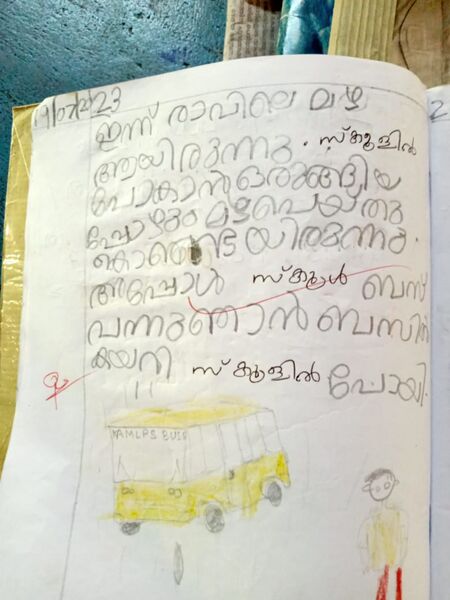 ഇന്ന് രാവിലെ മഴ
ആയിരുന്നു. സ്കൂളിൽ
പോകാൻ ഒരുങ്ങിയ
പ്പോഴും മഴ പെയ്തു
കൊണ്ടേയിരുന്നു.
അപ്പോൾ സ്കൂൾ ബസ്
വന്നു ഞാൻ ബസിൽ
കയറി സ്കൂളിൽ പോയി.
AMLPS BUS